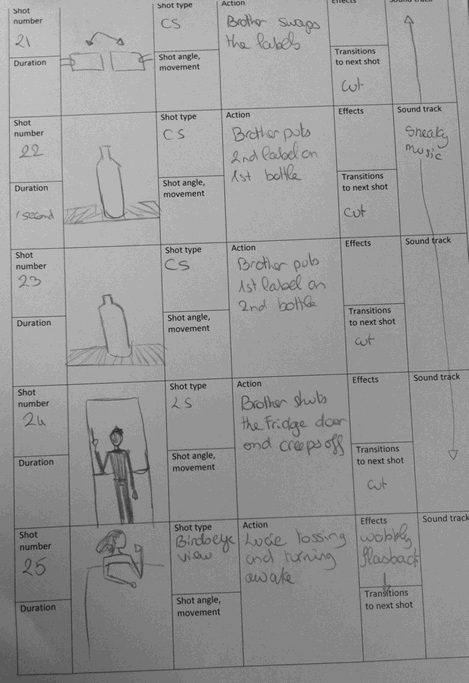 Shot number
21
Duration
Shot type
CS
Shot angle, movement
Action
Brother swaps
the labels
Effects
Transitions to next shot
cut
Sound track
Shot number
22
Duration
1 second
Shot type
CS
Shot angle, movement
Action
Brother puts
2nd label on
1st bottle
Effects
Transitions to next shot
cut
Sound track
Sneaky
music
Shot number
23
Duration
Shot type
CS
Shot angle, movement
Action
Brother puts
1st label on
2nd bottle
Effects
Transitions to next shot
cut
Sound track
Shot number
24
Duration
Shot type
LS
Shot angle, movement
Action
Brother shuts
the Fridge door
and creeps off
Effects
Transitions to next shot
cut
Sound track
Shot number
25
Duration
Shot type
Birdseye
view
Shot angle, movement
Action
Lucie tossing
and turning
awake
Effects
wobbly
flasback
Transitions to next shot
Sound track